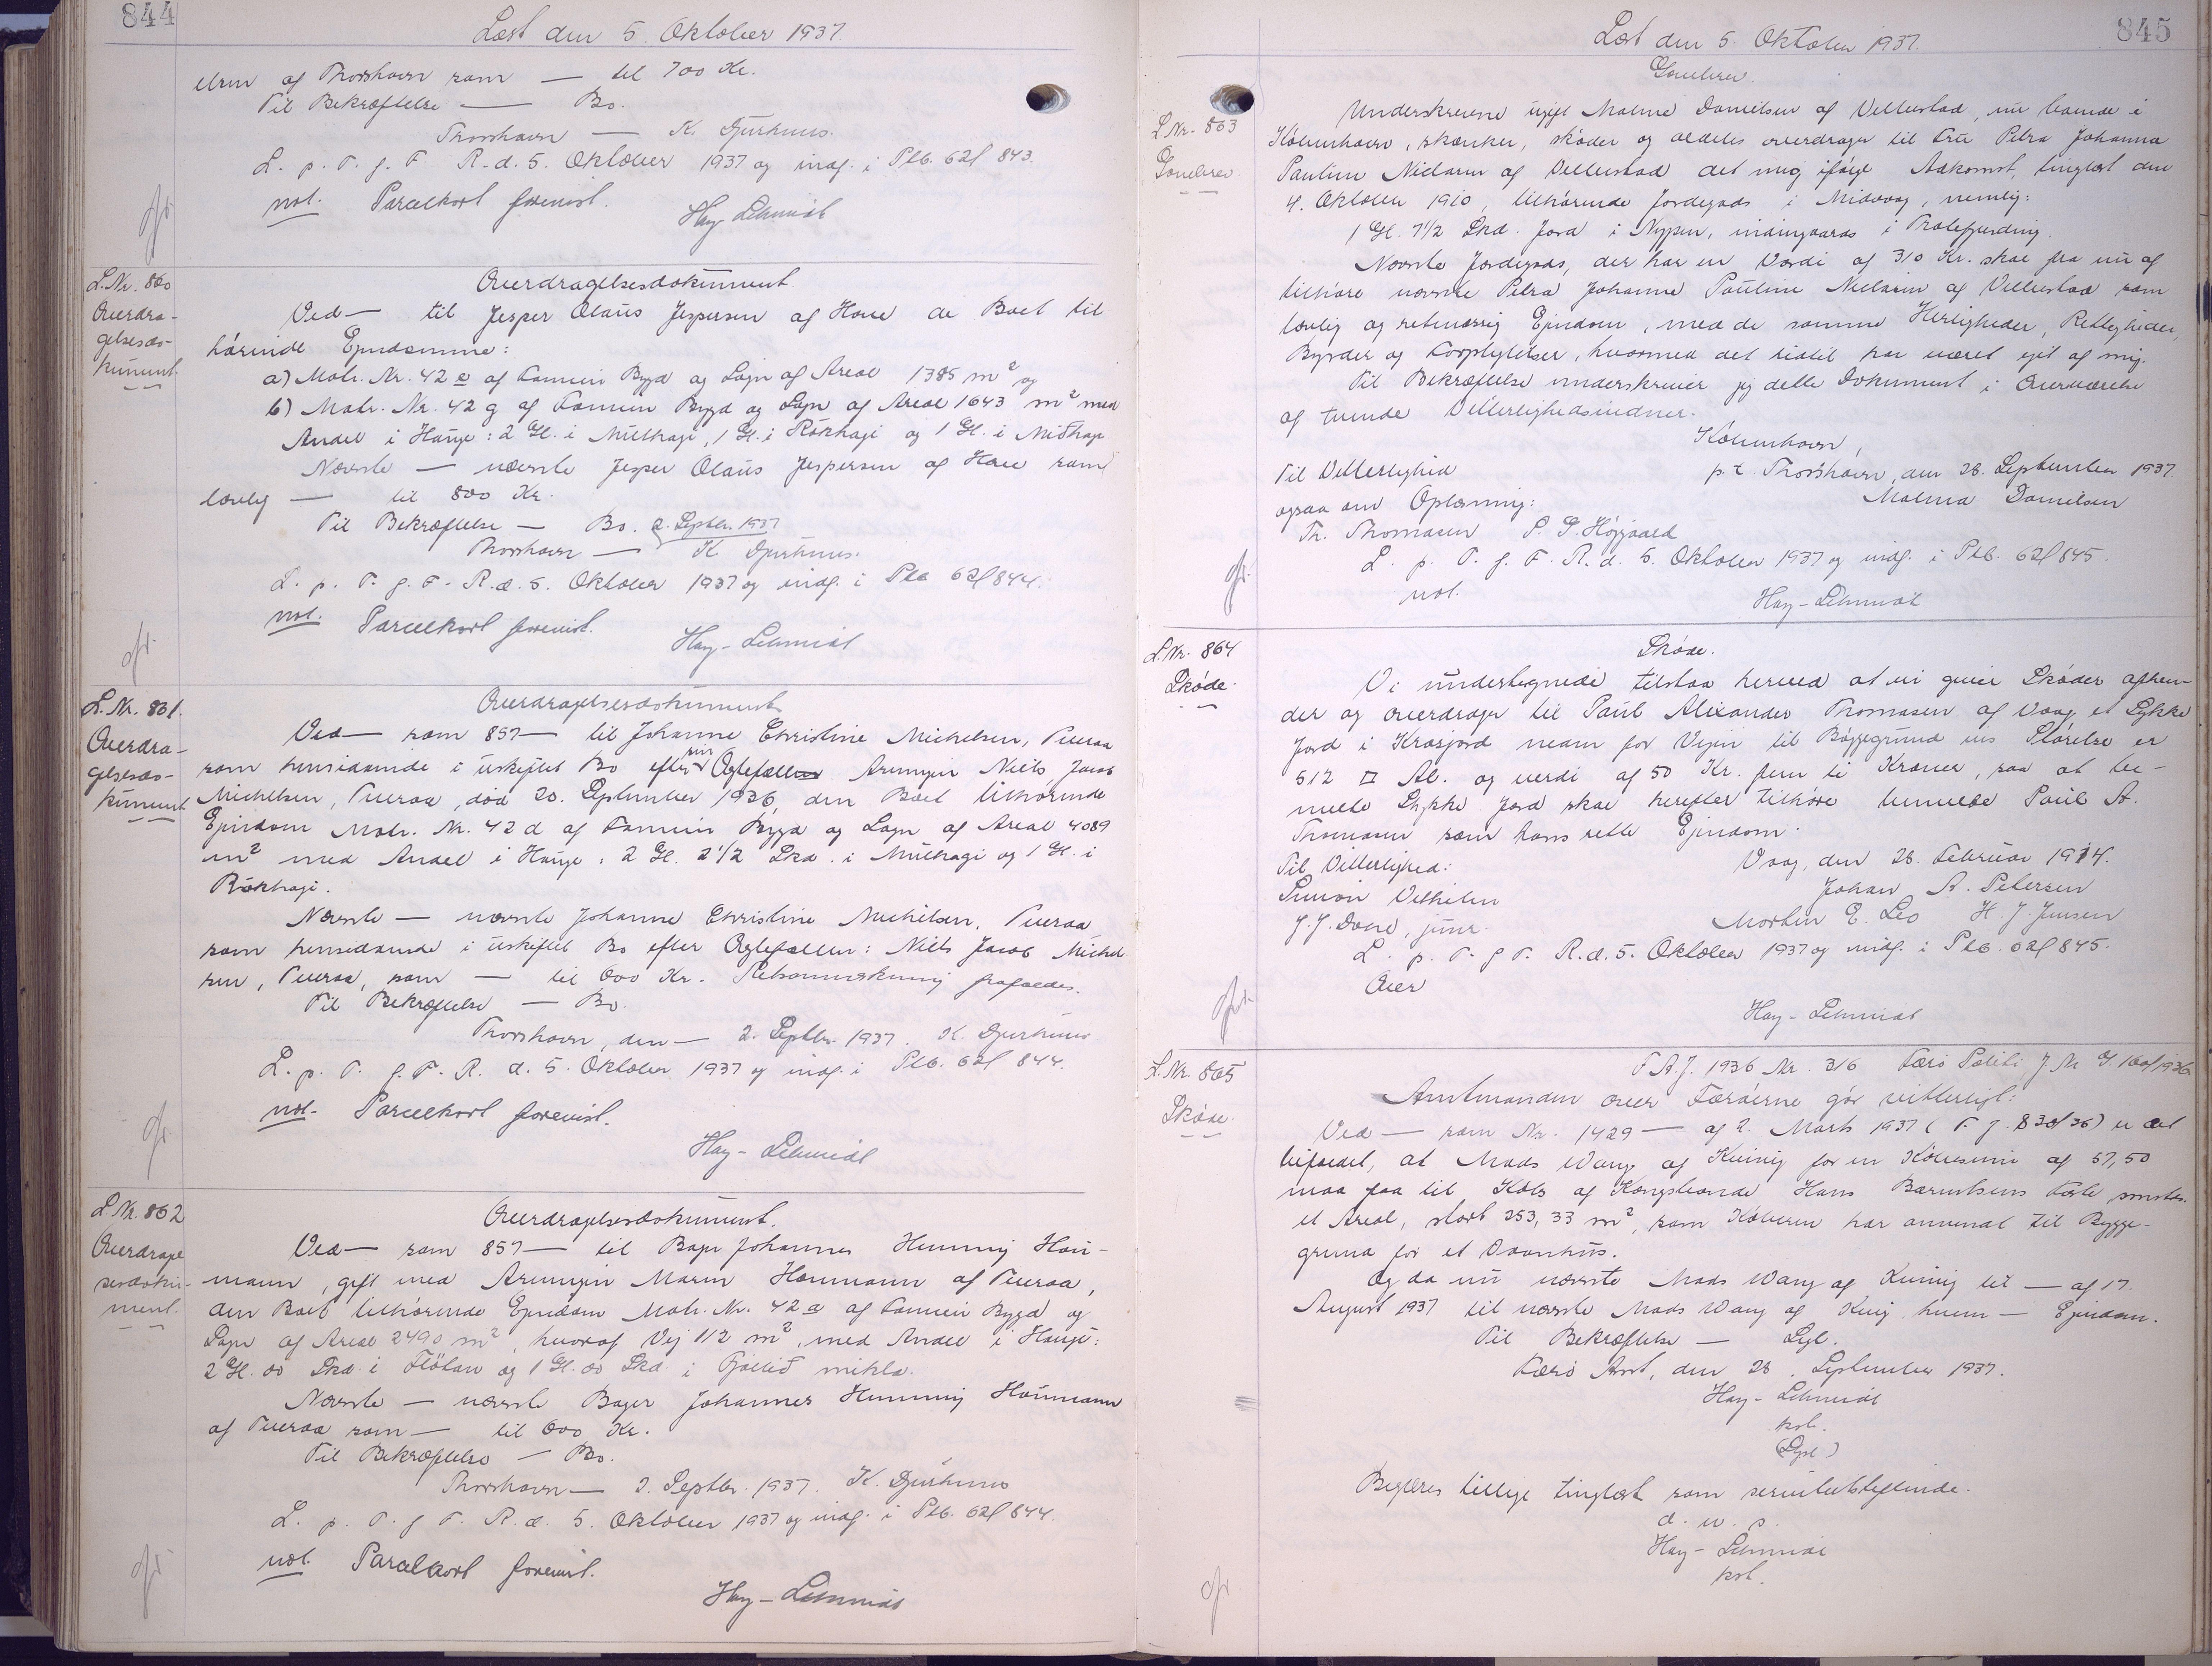 844
Læst den 5. Oktober 1937.
elsen af Thorshavn som — til 700 Kr.
Til Bekræftelse — Bo.
Thorshavn — K. Djurhuus.
L. p. T. f. F. R. d. 5. Oktober 1937 og indf. i Ptb. 62f 843.
not. Parcelkort forevist.
Hay-Schmidt
L.Nr. 860
Overdra-
gelsesdo-
kument
Overdragelsesdokument.
Ved — til Jesper Olaüs Jespersen af Hove de Boet til
hörende Ejendomme:
a) Matr. Nr. 42 e af Famien Bygd og Sogn af Areal 1385 m² og
b) Matr. Nr. 42 g af Famien Bygd og Sogn af Areal 1643 m² med
Andel i Hauge: 2 Gl. i Millhagi, 1 Gl. i Rókhagi og 1 Gl. i
Nævnte — nævnte Jesper Olaüs Jespersen af Hove som
lovlig — til 800 Kr.
Til Bekræftelse — Bo. 2. Septbr. 1937
Thorshavn — K. Djurhuus.
L. p. T. f. F. R. d. 5. Oktober 1937 og indf. i Ptb 62f 844.
not. Parcelkort forevist.
Hay-Schmidt
L.Nr. 861.
Overdra-
gelsesdo-
kument
Overdragelsesdokument
Ved — som 857 — til Johanne Christine Michelsen, Tveraa
som hensiddende i uskiftet Bo efter sin Ægtefælle Niels Jacob
Michelsen, Tveraa, död 20. September 1926, den Boet tilhörende
Ejendom Matr. Nr. 42 d af Famien Bygd og Sogn af Areal 4089
m² med Andel i Hauge: 2 Gl. 2 1/2 Skd. i Millhagi og 1 Gl. i
Rókhagi.
Nævnte — nævnte Johanne Christine Michelsen, Tveraa
som hensiddende i uskiftet Bo efter Ægtefællen: Niels Jacob Michel
sen, Tveraa, som — til 600 Kr. frafaldes.
Til Bekræftelse — Bo.
Thorshavn, den — 2. Septbr. 1937. K. Djurhuus
L. p. T. f. F. R. d. 5. Oktober 1937 og indf. i Ptb. 62f 844.
not. Parcelkort forevist.
Hay-Schmidt
L.Nr. 862
Overdragel
sesdoku-
ment.
Overdragelsesdokument.
Ved — som 857 — til Bager Johannes Henning Hau-
mann, gift med Maren Haumann af Tveraa,
den Boet tilhörende Ejendom Matr. Nr. 42 a af Famien Bygd og
Sogn af Areal 2490 m², hvoraf Vej 112 m², med Andel i Hauge:
2 Gl. 00 Skd. i Flötan og 1 Gl. 00 Skd. i Fjallið mikla.
Nævnte — nævnte Bager Johannes Henning Haumann
af Tveraa som — til 600 Kr.
Til Bekræftelse — Bo.
Thorshavn — 2. Septbr. 1937. K. Djurhuus
L. p. T. f. F. R. d. 5. Oktober 1937 og indf. i Ptb. 62f 844.
not. Parcelkort forevist.
Hay-Schmidt
845
Læst den 5. Oktober 1937.
L.Nr. 863
Gavebrev.
Gavebrev.
Underskrevne ugift Malene Danielsen af Velbestad, nu boende i
Köbenhavn, skænker, skøder og aldeles overdrager til Fru Petra Johanna
Pauline Niclasen af Velbestad det mig ifölge Adkomst, tinglæst den
4. Oktober 1910, tilhörende Jordegods i Midvaag, nemlig:
1 Gl. 7 1/2 Skd. Jord i Nypen, indengaards i
Nævnte Jordegods, der har en Værdi af 310 Kr. skal fra nu af
tilhöre nævnte Petra Johanne Pauline Niclasen af Velbestad som
lovlig og retmæssig Ejendom, med de samme Herligheder, Rettigheder,
Byrder og Forpligtelser, hvormed det hidtil har været ejet af mig.
Til Bekræftelse underskriver jeg dette Dokument i Overværelse
af tvende Vitterlighedsvidner.
Köbenhavn,
p.t. Thorshavn, den 28. September 1937.
Malena Danielsen
Til Vitterlighed
ogsaa om Oplæsning:
Th. Thomasen P. S. Højgaard
L. p. T. f. F. R. d. 5. Oktober 1937 og indf. i Ptb. 62f 845.
not.
Hay-Schmidt
L.Nr. 864
Sköde.
Sköde.
Vi undertegnede tilstaa herved at vi giver Sköder afhen-
der og overdrager til Paul Alexander Thomasen af Vaag et Stykke
Jord i Krosjord neam for Vejen til Byggegrund ens Störelse er
612 □ Al. og verdi af 50 Kr. fem ti Kroner, saa at be-
melte Stykke Jord skal herefter tilhöre bemelde Paul A.
Thomasen som hans rette Ejendom.
Til Vitterlighed:
Vaag, den 28. Februar 1914.
Johan A. Petersen
Simon Vilhelm
J. J. Dahl, junr.
Morten E. Leo H. J. Jensen
L. p. T. f. F. R. d. 5. Oktober 1937 og indf. i Ptb. 62f 845.
Hay-Schmidt
L.Nr. 865
Sköde.
F.A.J. 1936 Nr. 316 Færø Politi J. Nr. G. 160/1936
Amtmanden over Færöerne gör vitterligt:
Ved — som Nr. 1429 — af 2. Marts 1937 (F. J. 830/36) er det
bifaldet, at Mads Wang af Kvivig for en Köbesum af 57,50
maa faa til Købs af Kongsbonde Hans Fæste smstds.
et Areal, stort 253,33 m², som Köberen har anvendt til Bygge-
grund for et Vaanhus.
Og da nu nævnte Mads Wang af Kvivig til — af 17.
August 1937 til nævnte Mads Wang af Kvivig hvem — Ejendom.
Til Bekræftelse — Sgl.
Færø Amt, den 28. September 1937.
Hay-Schmidt
kst.
(Sgl.)
Begæres tillige tinglæst som servitutstiftende.
d. u. s.
Hay-Schmidt
kst.